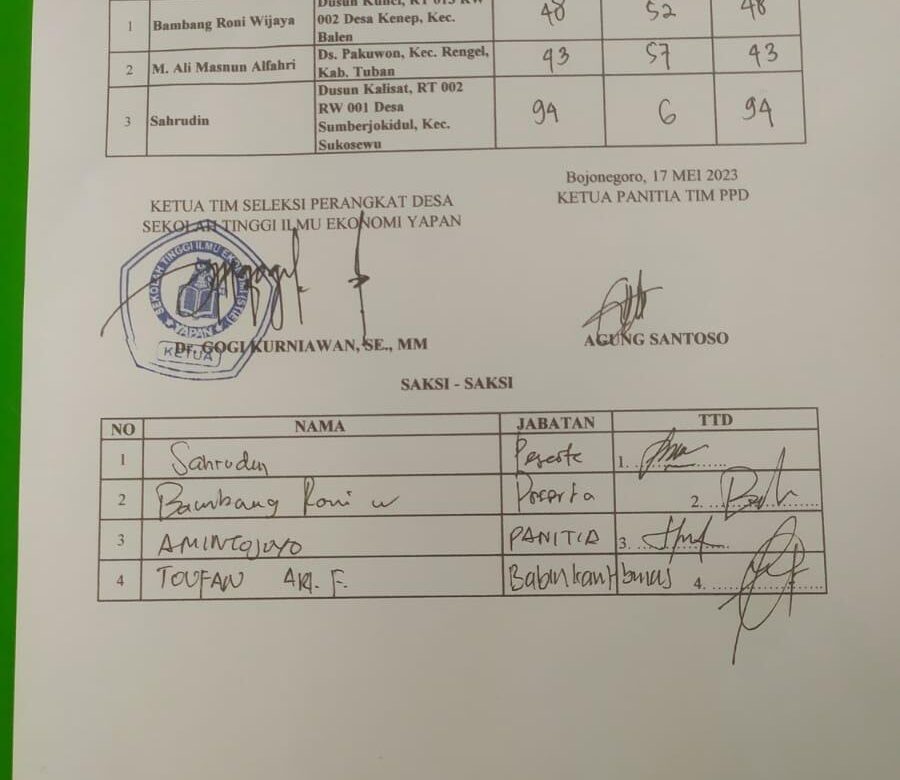 Dusun Kunci, RT 013 RW
1 Bambang Roni Wijaya 002 Desa Kenep, Kec. 48 52 48
Balen
2 M. Ali Masnun Alfahri Ds. Pakuwon, Kec. Rengel, 43 57 43
Kab. Tuban
Dusun Kalisat, RT 002
RW 001 Desa
3 Sahrudin Sumberjokidul, Kec. 94 6 94
Sukosewu
Bojonegoro, 17 MEI 2023
KETUA TIM SELEKSI PERANGKAT DESA
KETUA PANITIA TIM PPD
SEKOLAH TINGGI ILMU EKONOMI YAPAN
SEKOLAH TINGGI ILMU EKONOMI (STIE)
YAPAN
KETUA
Dr. GOGI KURNIAWAN, SE., MM
AGUNG SANTOSO
SAKSI - SAKSI
NO NAMA JABATAN TTD
1 Sahrudin Peserta 1.
2 Bambang Roni W Peserta 2.
3 AMINTOJOYO PANITIA 3.
4 TOUFAN 4.